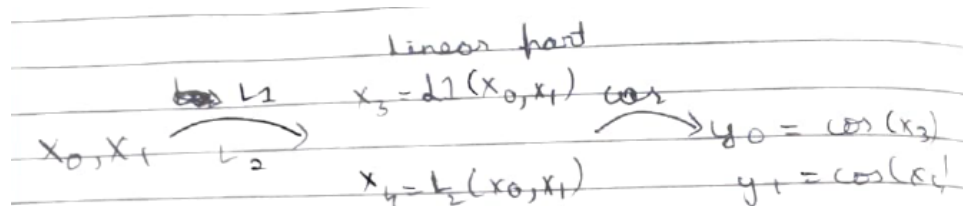 Linear part
L1 x₃ = L1(x₀,x₁) cos
x₀,x₁ L₂ y₀ = cos(x₃)
x₄ = L₂(x₀,x₁) y₁ = cos(x₄)